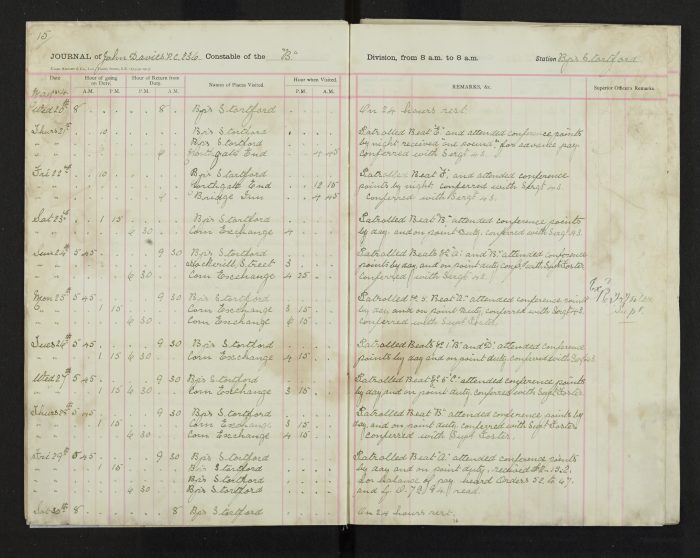 15
JOURNAL of John Davies P.C. 236. Constable of the "B" Division, from 8 a.m. to 8 a.m. Station Bp's Stortford
Date Hour of going on Duty. Hour of Return from Duty. Names of Places Visited. Hour when Visited. REMARKS, &c. Superior Officer's Remarks.
A.M. P.M. P.M. A.M. P.M. A.M.
Wed 20th 8 8 Bp's Stortford On 24 hours rest
Thurs 21st 10 Bp's Stortford Patrolled Beat "E" and attended conference points
" " Bp's Stortford by night received one pound, for advance pay
" " Northgate End 4 45 conferred with Sergt 43.
Fri 22nd 10 Bp's Stortford Patrolled Beat and attended conference
" " Northgate End 12 15 points by night conferred with Sergt 43
" " Bridge Inn 4 45 conferred with Sergt 43.
Sat 23rd 1 15 Bp's Stortford Patrolled Beat "B" attended conference points
" " 6 30 Corn Exchange 4 by day and on point duty, conferred with Sergt 43.
Sun 24th 5 45 9 30 Bp's Stortford Patrolled Beats "A" and "B" attended conference
" " Street 3 points by day, and on point duty conf with Supt Foster
" " 6 30 Corn Exchange 4 25 conferred with Sergt 43
Mon 25th 5 45 9 30 Bp's Stortford Patrolled 5 Beat "D" attended conference point
1 15 Corn Exchange 3 15 by day, and on point duty, conferred with Sergt 43
" " 6 30 Corn Exchange 6 15 conferred with Supt Foster.
Supt.
Tues 26th 5 45 9 30 Bp's Stortford Patrolled Beats "B" and "D" attended conference
" " 1 15 6 30 Corn Exchange 4 15 points by day and on point duty, conferred with Sergt 43
Wed 27th 5 45 9 30 Bp's Stortford Patrolled Beat "C" attended conference points
" " 1 15 6 30 Corn Exchange 3 15 by day and on point duty, conferred with Supt Foster
Thurs 28th 5 45 9 30 Bp's Stortford Patrolled Beat "B" attended conference points by
" " 1 15 Corn Exchange 3 15 day, and on point duty, conferred with Supt Foster
" " 6 30 Corn Exchange 4 15 conferred with Supt Foster.
Fri 29th 5 45 9 30 Bp's Stortford Patrolled Beat "A" attended conference points
" " 1 15 Bp's Stortford by day and on point duty, received
" " Bp's Stortford for balance of pay heard Orders 52 to 47.
" " 6 30 Bp's Stortford and read
Sat 30th 8 8 Bp's Stortford On 24 hours rest.